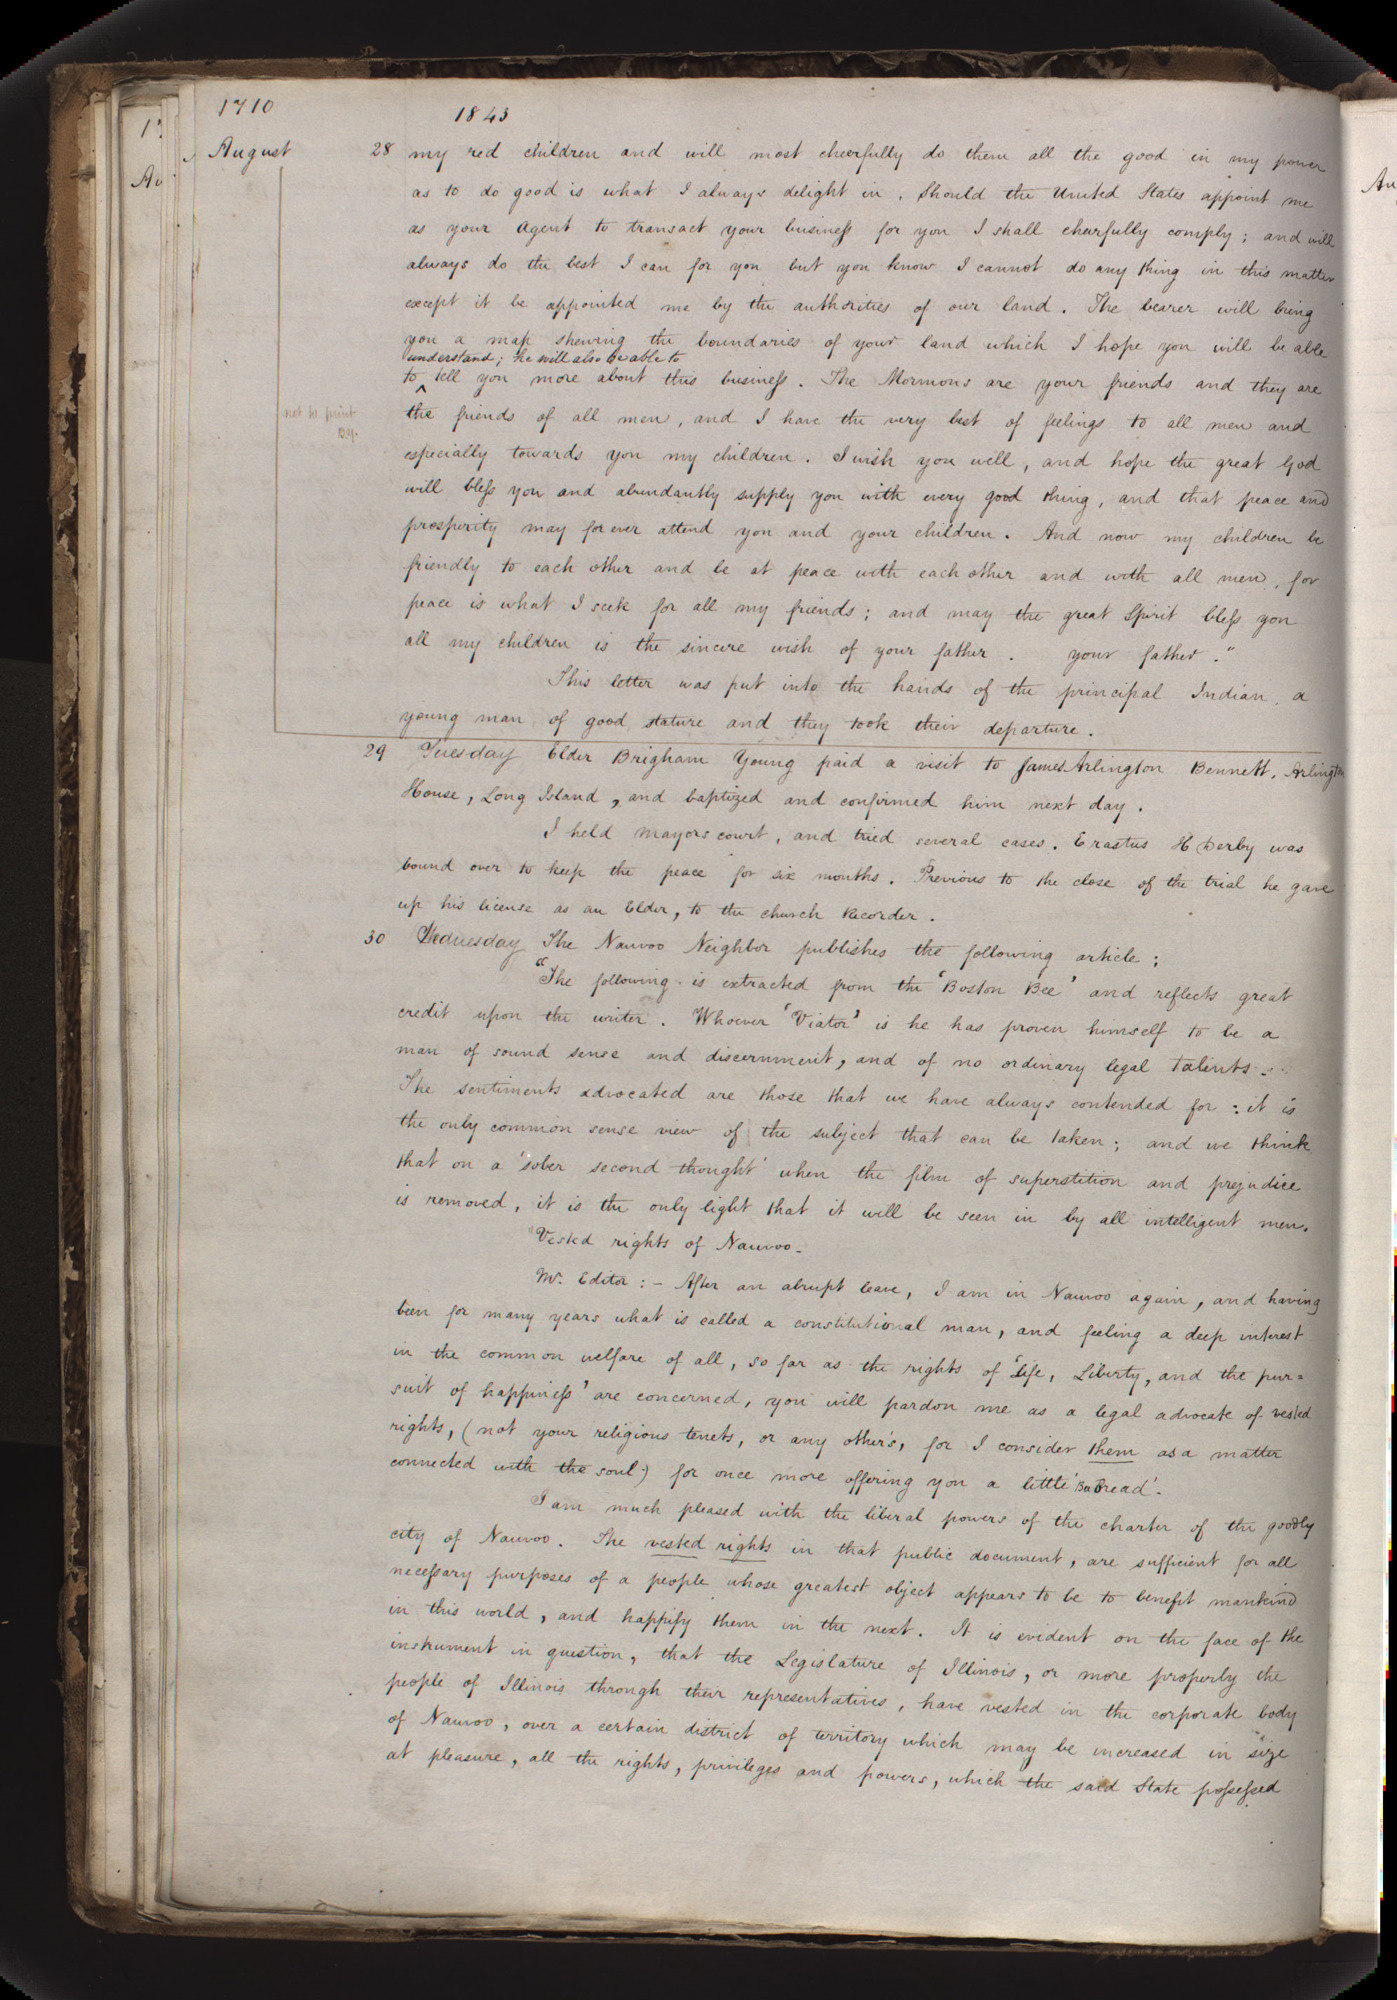 1710
1843
August
28 my red children and will most cheerfully do them all the good in my power
as to do good is what I always delight in. Should the United States appoint me
as your Agent to transact your business for you I shall chearfully comply; and will
always do the best I can for you but you know I cannot do any thing in this matter
except it be appointed me by the authorities of our land. The bearer will bring
you a map shewing the boundaries of your land which I hope you will be able
understand; he will also be able to
to ^ tell you more about this business. The Mormons are your friends and they are
the friends of all men, and I have the very best of feelings to all men and
not to print
B.Y.
especially towards you my children. I wish you well, and hope the great God
will bless you and abundantly supply you with every good thing, and that peace and
prosperity may for ever attend you and your children. And now my children be
friendly to each other and be at peace with each other and with all men, for
peace is what I seek for all my friends; and may the great Spirit bless you
all my children is the sincere wish of your father. your father."
This letter was put into the hands of the principal Indian, a
young man of good stature and they took their departure.
29 Tuesday Elder Brigham Young paid a visit to James Arlington Bennett, Arlington
House, Long Island, and baptized and confirmed him next day.
I held Mayors court, and tried several cases. Erastus H Derby was
bound over to keep the peace for six months. Previous to the close of the trial he gave
up his license as an Elder, to the church Recorder.
30 Wednesday The Nauvoo Neighbor publishes the following article;
"The following is extracted from the 'Boston Bee' and reflects great
credit upon the writer. Whoever 'Viator' is he has proven himself to be a
man of sound sense and discernment, and of no ordinary legal talents.
The sentiments advocated are those that we have always contended for: it is
the only common sense view of the subject that can be taken; and we think
that on a 'sober second thought' when the film of superstition and prejudice
is removed, it is the only light that it will be seen in by all intelligent men.
Vested rights of Nauvoo.
Mr. Editor:- After an abrupt leave, I am in Nauvoo again, and having
been for many years what is called a constitutional man, and feeling a deep interest
in the common welfare of all, so far as the rights of 'life, Liberty, and the pur=
suit of happiness' are concerned, you will pardon me as a legal advocate of vested
rights, (not your religious tenets, or any other's, for I consider them as a matter
connected with the soul.) for once more offering you a little 'Bee Bread'.
I am much pleased with the liberal powers of the charter of the goodly
city of Nauvoo. The vested rights in that public document, are sufficient for all
necessary purposes of a people whose greatest object appears to be to benefit mankind
in this world, and happify them in the next. It is evident on the face of the
instrument in question, that the Legislature of Illinois, or more properly the
people of Illinois through their representatives, have vested in the corporate body
of Nauvoo, over a certain district of territory which may be increased in size
at pleasure, all the rights, privileges and powers, which the said State possessed